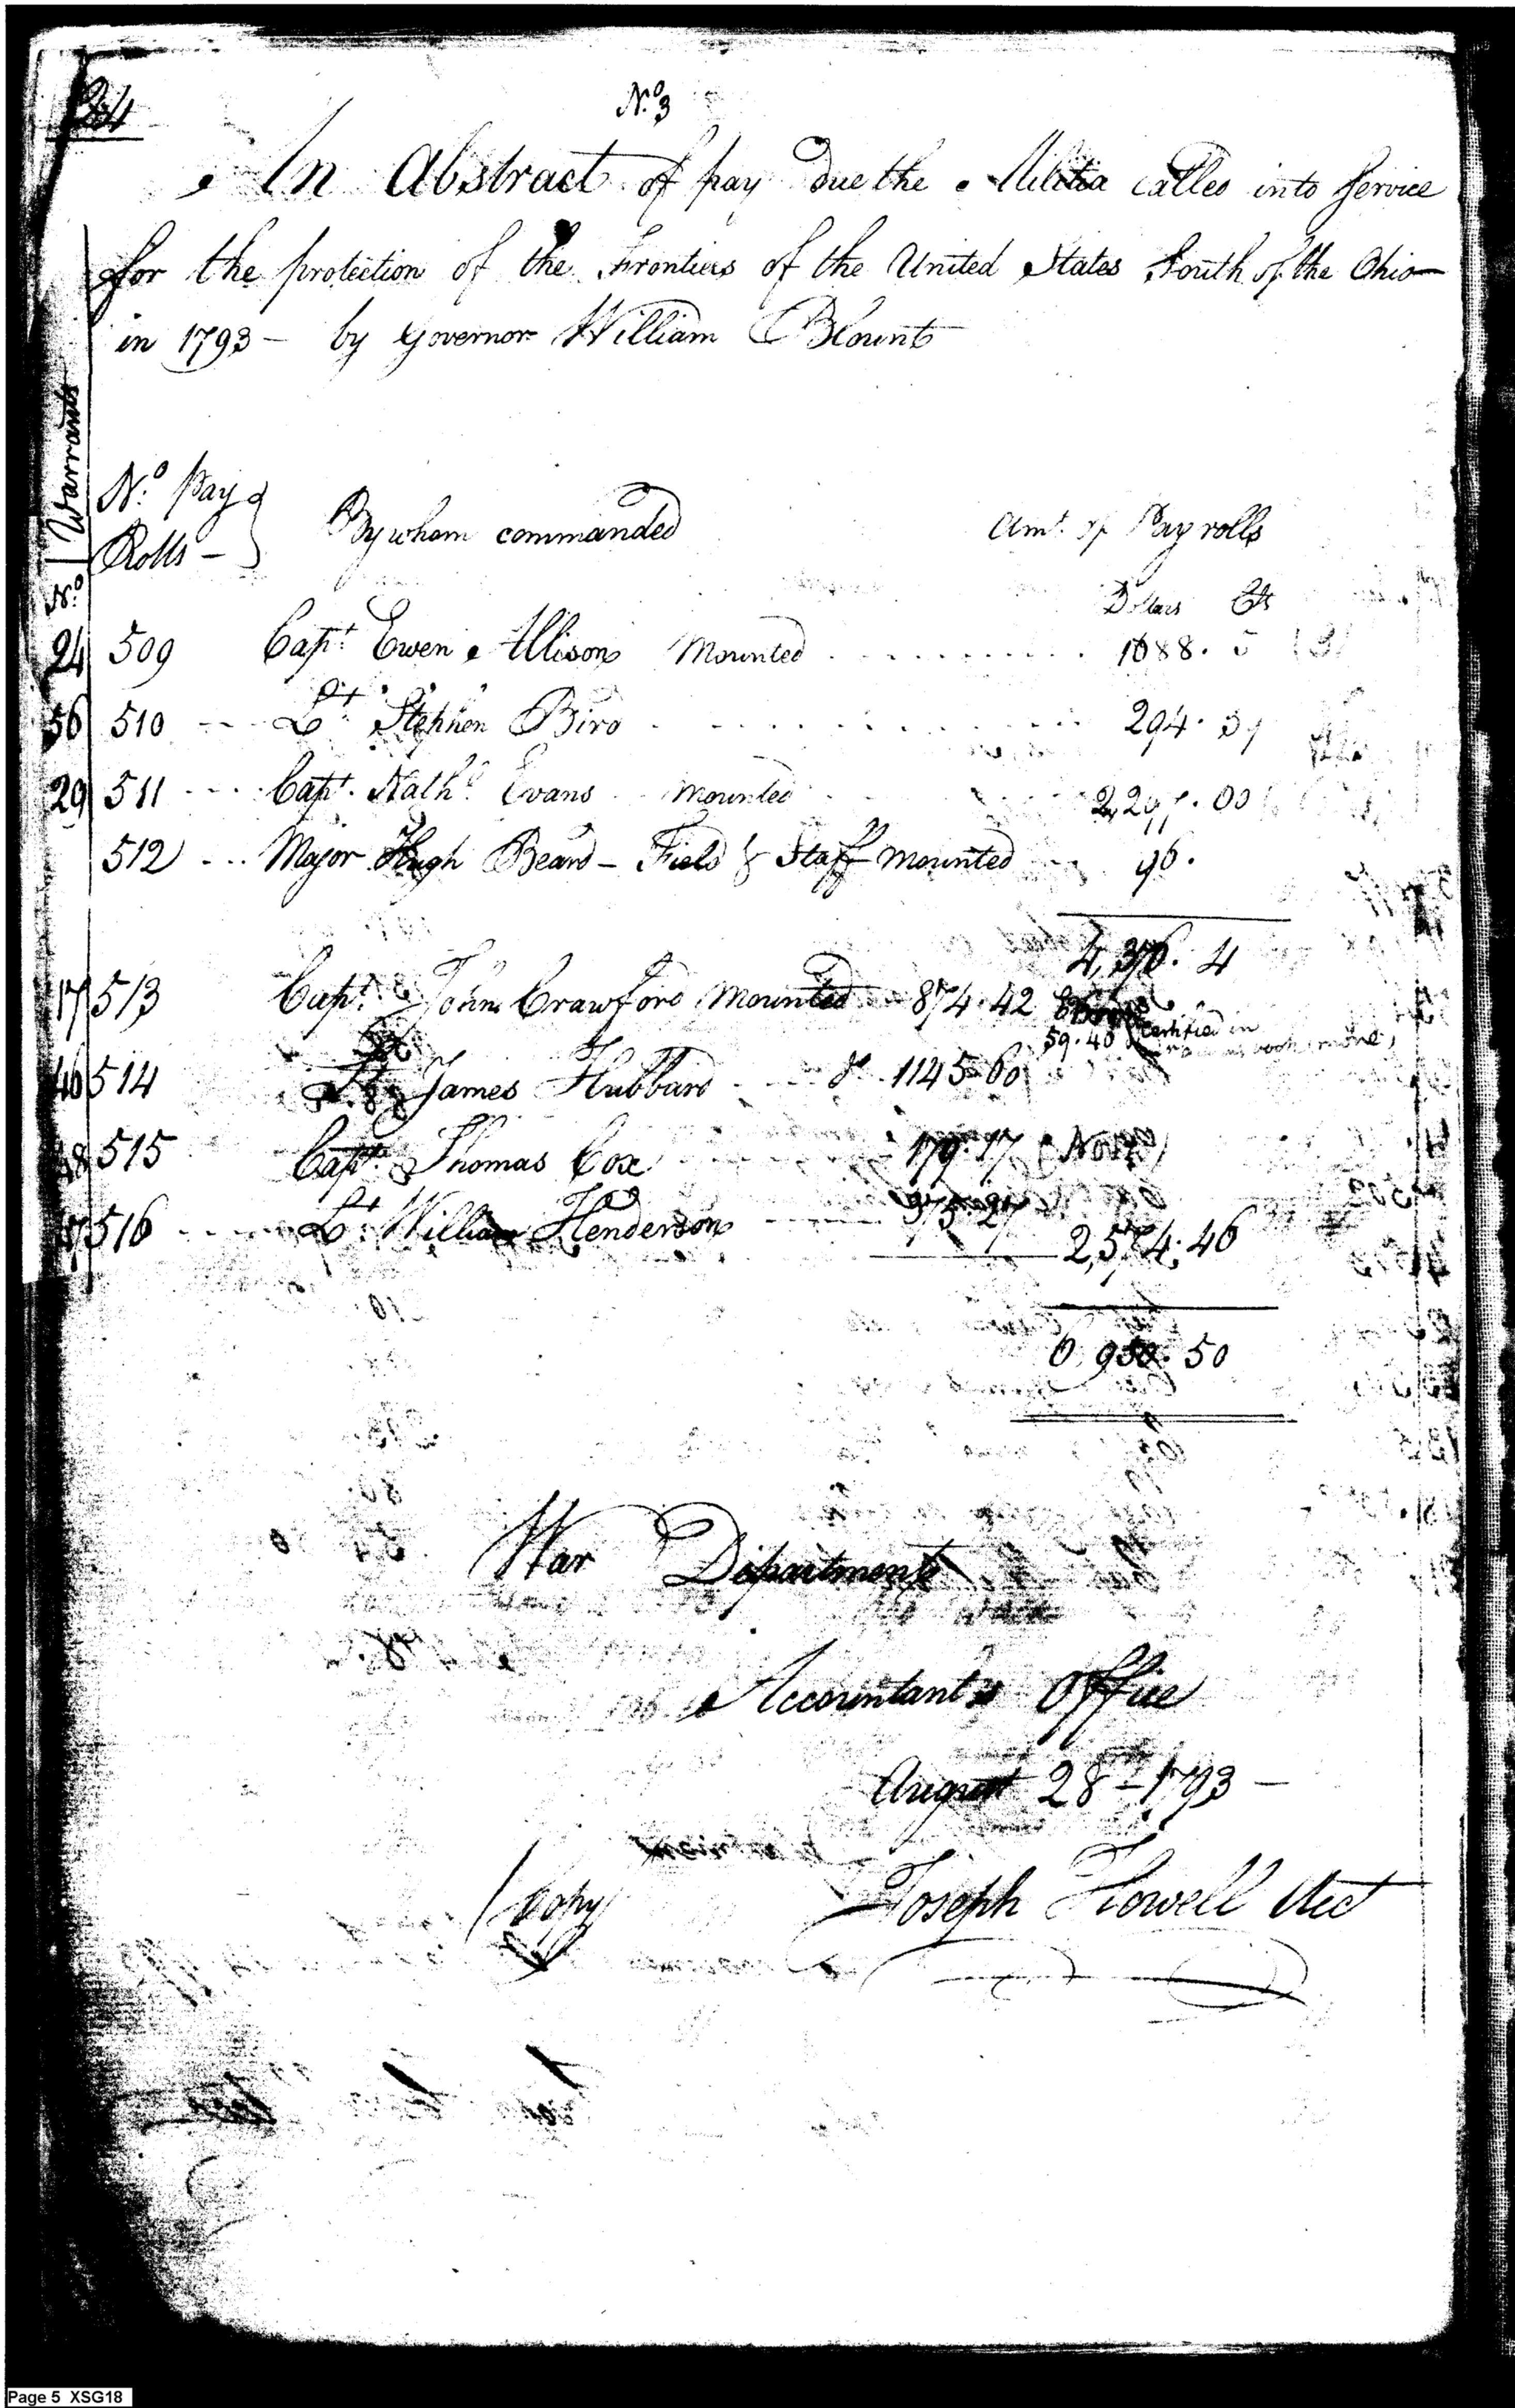 34
No. 3
An Abstract of pay due the Militia called into Service
for the protection of the Frontiers of the United States South of the Ohio
in 1793 – by Governor William Blount
No. Warrants
No. Pay Rolls –
By whom commanded
Amt. of Pay rolls
Dollars Cts
24 509 Capt. Ewen Allison Mounted 1688. 5
56 510 Lt. Stephen Bird 294.
29 511 Capt. Nathl. Evans mounted 00
512 Major Hugh Beard – Field & Staff mounted 96.
4,376. 4
17 513 Capt. John Crawford Mounted 874.42
59.40 certified in
more
46 514 James Hubbard do 1145.60
515 Capt. Thomas Cox 179.17
516 Lt. William Henderson 375.27 2,574.46
6,950.50
War Department
Accountant's Office
August 28 – 1793 –
Copy Joseph Howell Acct
Page 5 XSG18